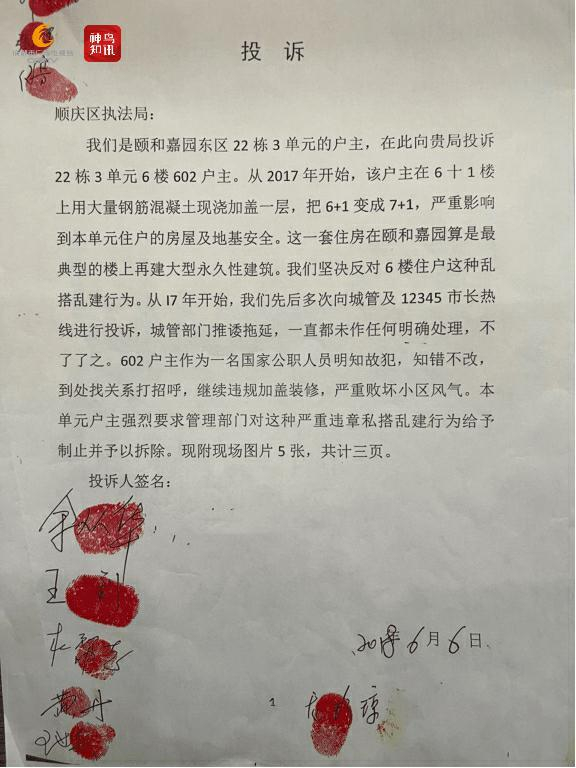 神鸟
知讯
投 诉
顺庆区执法局：
我们是颐和嘉园东区 22 栋 3 单元的户主，在此向贵局投诉
22 栋 3 单元 6 楼 602 户主。从 2017 年开始，该户主在 6 十 1 楼
上用大量钢筋混凝土现浇加盖一层，把 6+1 变成 7+1，严重影响
到本单元住户的房屋及地基安全。这一套住房在颐和嘉园算是最
典型的楼上再建大型永久性建筑。我们坚决反对 6 楼住户这种乱
搭乱建行为。从 I7 年开始，我们先后多次向城管及 12345 市长热
线进行投诉，城管部门推诿拖延，一直都未作任何明确处理，不
了了之。602 户主作为一名国家公职人员明知故犯，知错不改，
到处找关系打招呼，继续违规加盖装修，严重败坏小区风气。本
单元户主强烈要求管理部门对这种严重违章私搭乱建行为给予
制止并予以拆除。现附现场图片 5 张，共计三页。
投诉人签名：
王
6月6日
黄丹
1
琼